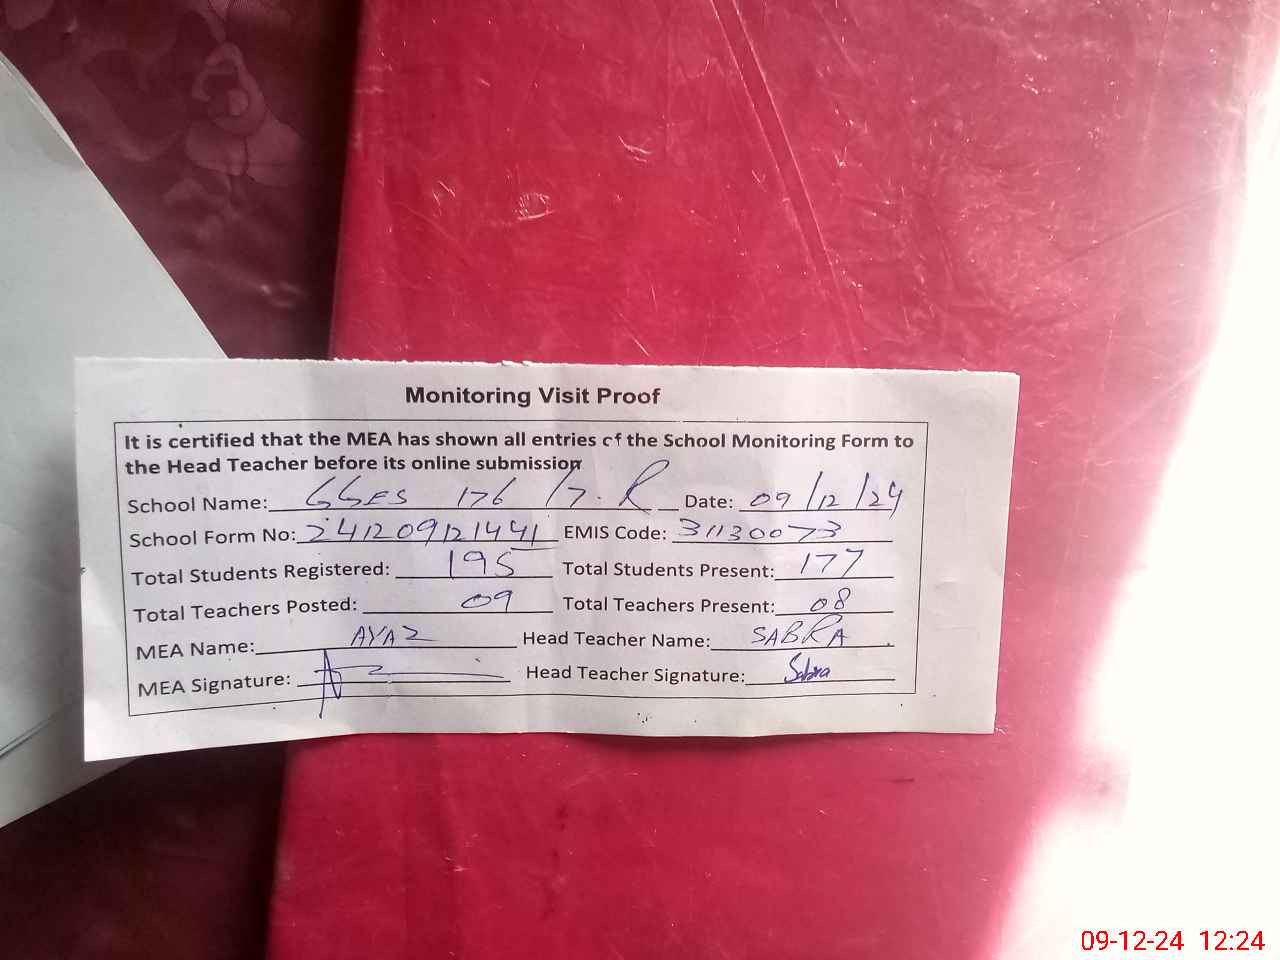 Monitoring Visit Proof
It is certified that the MEA has shown all entries of the School Monitoring Form to
the Head Teacher before its online submission
School Name: GGES 176 /7.R Date: 09/12/24
School Form No: 241209121441 EMIS Code: 31130073
Total Students Registered: 195 Total Students Present: 177
Total Teachers Posted: 09 Total Teachers Present: 08
MEA Name: AYAZ Head Teacher Name: SABRA
MEA Signature: Head Teacher Signature: Sabra
09-12-24 12:24